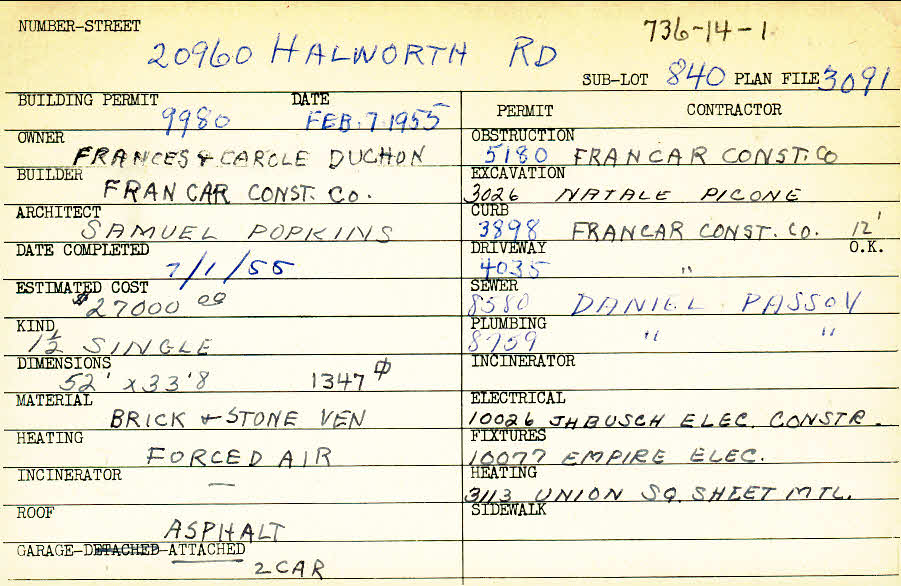 NUMBER-STREET 736-14-1
20960 HALWORTH RD
SUB-LOT 840 PLAN FILE 3091
BUILDING PERMIT DATE
9980 FEB. 7. 1955
OWNER
FRANCES & CARCLE DUCHON
BUILDER
FRAN CAR CONST. CO.
ARCHITECT
SAMUEL POPKINS
DATE COMPLETED
7/1/55
ESTIMATED COST
$27000 00
KIND
1½ SINGLE
DIMENSIONS
52' x 33'8 1347 ⌀
MATERIAL
BRICK & STONE VEN
HEATING
FORCED AIR
INCINERATOR
—
ROOF
ASPHALT
GARAGE-DETACHED-ATTACHED
2 CAR
PERMIT CONTRACTOR
OBSTRUCTION
5180 FRANCAR CONST. CO
EXCAVATION
3026 NATALE PICONE
CURB
3898 FRANCAR CONST. CO. 12'
DRIVEWAY O.K.
4035 "
SEWER
8580 DANIEL PASSOV
PLUMBING
8759 " "
INCINERATOR
ELECTRICAL
10026 JHBUSCH ELEC. CONSTR.
FIXTURES
10077 EMPIRE ELEC.
HEATING
3113 UNION SQ. SHEET MTL.
SIDEWALK